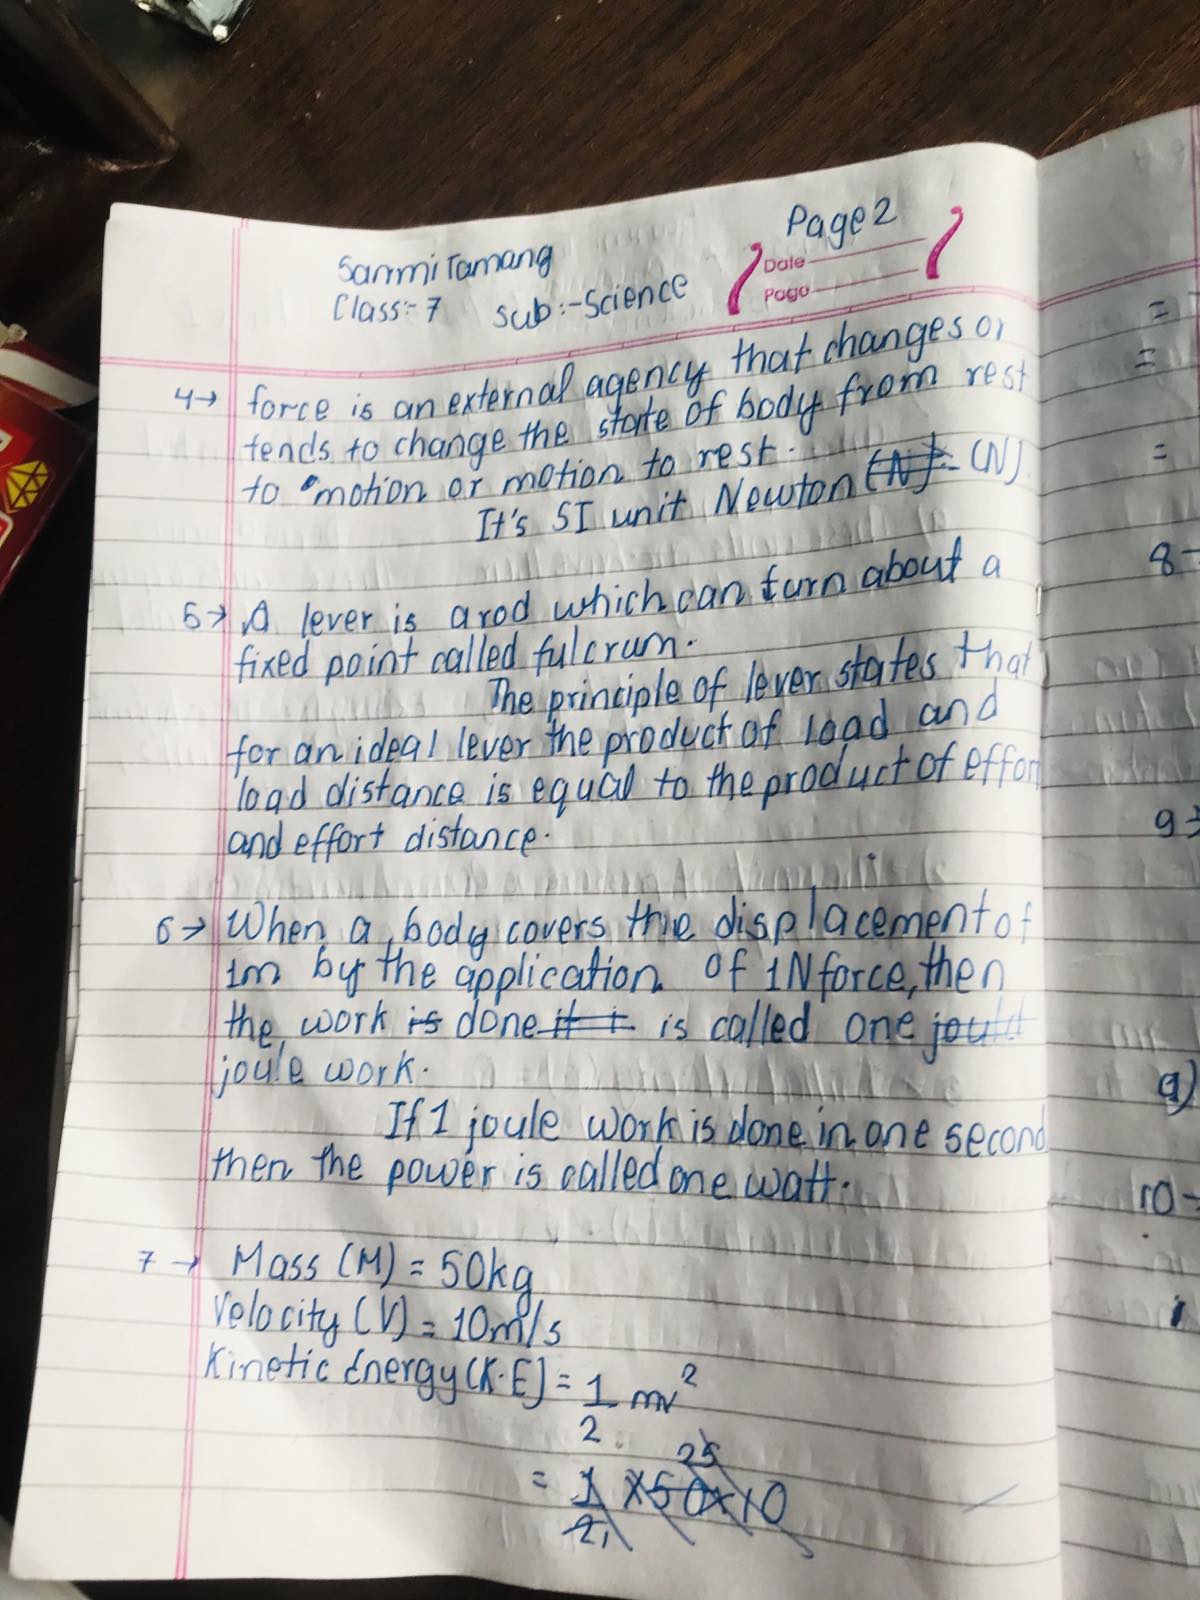 Page 2
Sanmi Tamang
Date
Class:- 7 Sub:- Science
Page
4→ force is an external agency that changes or
tends to change the state of body from rest
to motion or motion to rest.
It's SI unit Newton (N). (N).
5→ A lever is a rod which can turn about a
fixed point called fulcrum.
The principle of lever states that
for an ideal lever the product of load and
load distance is equal to the product of effort
and effort distance.
6→ When a body covers the displacement of
1m by the application of 1N force, then
the work is done it i is called one
joule work.
If 1 joule work is done in one second
then the power is called one watt.
7→ Mass (M) = 50kg
Velocity (V) = 10m/s
Kinetic Energy (K.E) = 1/2 mv²
25
= 1/2 × 50 × 10
=
=
=
8→
9→
a)
10→